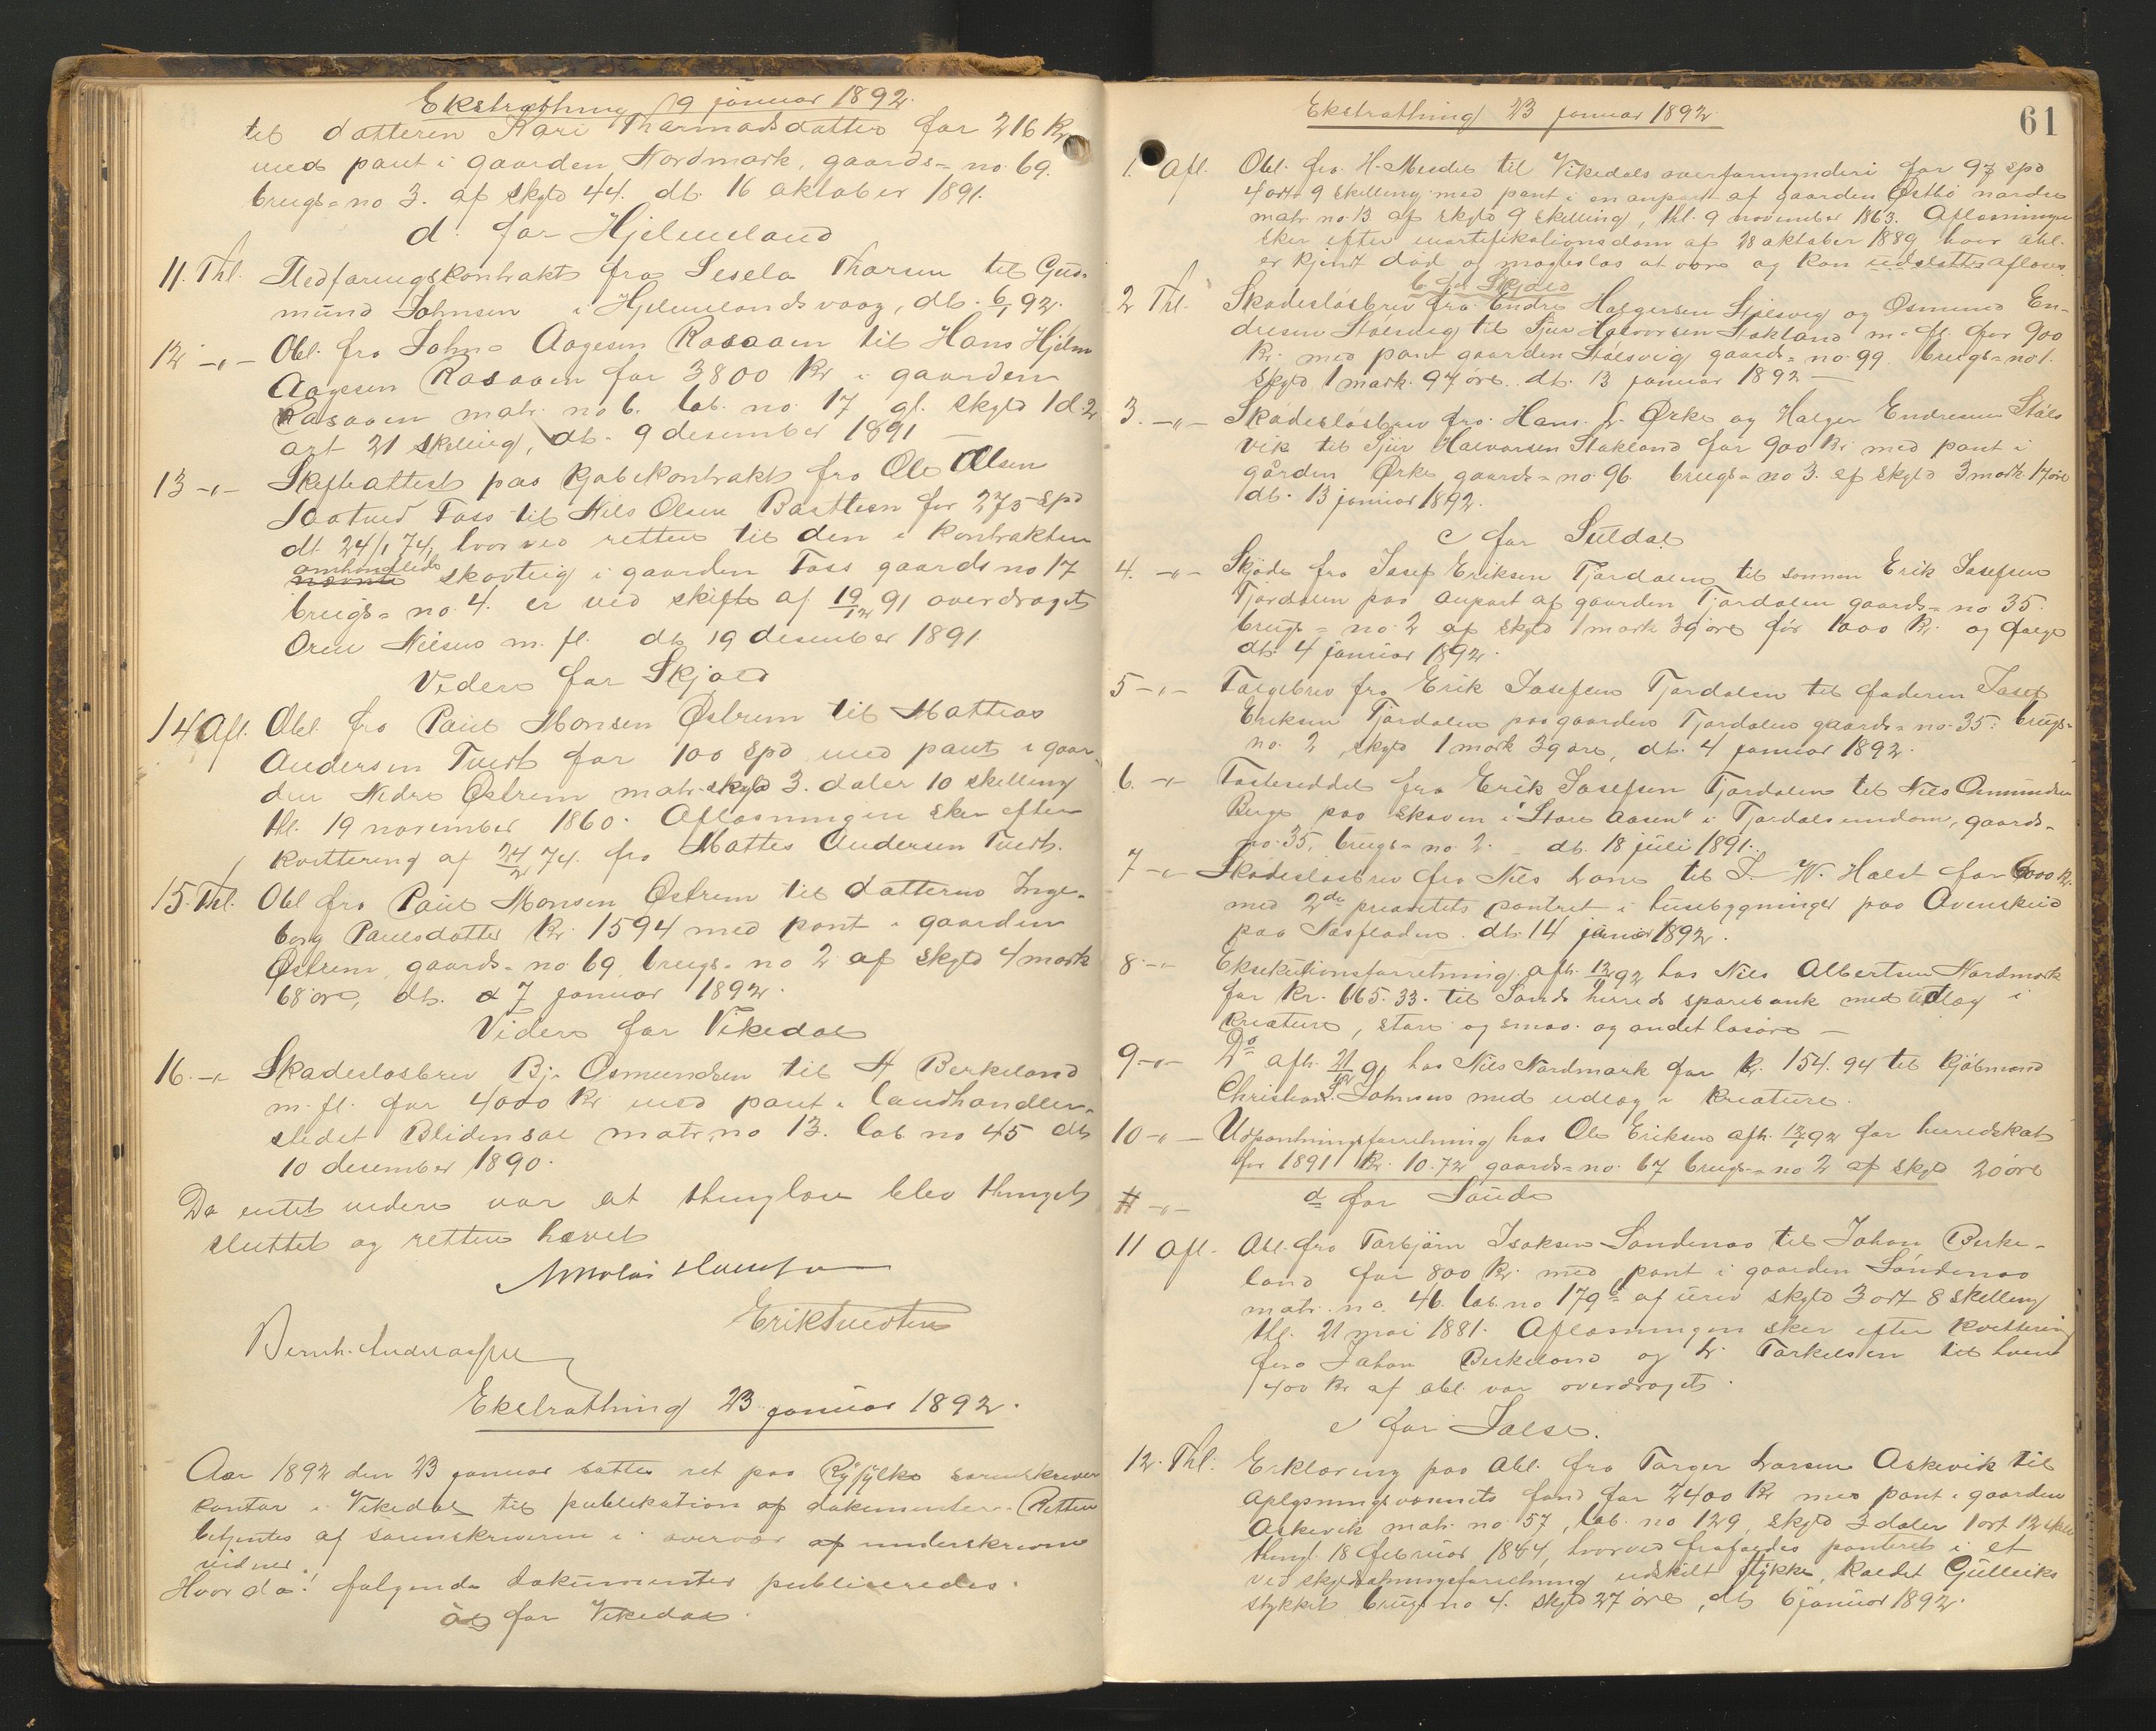 Ekstrathing 9 januar 1892.
til datteren Kari Thormodsdatter for 216 Kr
med pant i gaarden Nordmark, gaards=no. 69.
brugs=no 3. af skyld 44. dt. 16 oktober 1891.
d. for Hjelmeland
11. Thl. Fledføringskontrakt fra Sesela Thorsen til Gud-
mund Johnsen i Hjelmelandsvaag, dt. 6/1 92.
12 -"- Obl. fra John Aagesen Rasaaen til Hans Hjelm
Aagesen Rasaaen for 3800 Kr i gaarden
Rasaaen matr. no 6. løb. no. 17 gl. skyld 1 d. 2
ort 21 skilling, dt. 9 desember 1891 —
13 -"- Skifteattest paa kjøbekontrakt fra Ole Olsen
Foss til Nils Olsen for 275 spd
dt 24/1 74, hvorved retten til den i kontrakten
omhandlede nævnte skovteig i gaarden Foss gaards no 17
brugs=no. 4. er ved skifte af 19/12 91 overdraget
Nilsen m. fl. dt. 19 desember 1891.
Videre for Skjold
14 Afl. Obl. fra Paul Monsen Østrem til Mattias
Andersen Tveit for 100 spd med pant i gaar-
den Nedre Østrem matr. skyld 3. daler 10 skilling
thl. 19 november 1860. Aflæsningen sker efter
kvittering af 24/2 74. fra Mattis Andersen Tveit.
15. Thl. Obl fra Paul Monsen Østrem til datteren Inge-
borg Paulsdatter Kr. 1594 med pant i gaarden
Østrem, gaards=no 69. brugs=no 2 af skyld 4 mark
68 øre, dt. d 7 januar 1892.
Videre for Vikedal
16. -"- Skadesløsbrev Bj. Osmundsen til H Berkeland
m. fl. for 4000 Kr med pant i landhandler-
stedet Blidensol matr. no 13. løb. no 45 dt
10 desember 1890.
Da intet videre var at thinglæse blev thinget
sluttet og retten hævet
Erik Tvedten
Bernh. Andreassen
Ekstrathing 23 januar 1892.
Aar 1892 den 23 januar sattes ret paa Ryfylke sorenskriver
kontor i Vikedal til publikation af dokumenter. Retten
betjentes af sorenskriveren i overvær af underskrevne
vidner.
Hvor da! følgende dokumenter publiceredes.
a for Vikedal.
Ekstrathing 23 januar 1892.
61
1. Afl. Obl. fra H. til Vikedals overformynderi for 97 spd
4 ort 9 skilling med pant i en anpart af gaarden Østbø nordre
matr. no. 13 af skyld 9 skilling, thl. 9 november 1863. Aflæsningen
sker efter mortifikationsdom af 28 oktober 1889, hvor obl.
er kjendt død og magtesløs at være og kan udslettes afløses.
b for Skjold
2 Thl. Skadesløsbrev fra Endre Holgersen Stølsvig og Osmund En-
dresen Stølsvig til Sjur Halvorsen Stakland m. fl. for 900
Kr. med pant gaarden Stølsvig gaards=no. 99. brugs=no 1.
skyld 1 mark. 97 øre. dt. 13 januar 1892 —
3. -"- Skadesløsbrev fra Hans L. Ørke og Holger Endresen Støls
vik til Sjur Halvorsen Stakland for 900 Kr med pant i
gården Ørke gaards=no. 96. brugs=no 3. af skyld 3 mark 17 øre
dt. 13 januar 1892.
c for Suldal
4. -"- Skjøde fra Josef Eriksen Tjørdalen til sønnen Erik Josefsen
Tjørdalen paa anpart af gaarden Tjørdalen gaards=no 35.
brugs=no. 2 af skyld 1 mark 39 øre for 1000 Kr. og følge
dt. 4 januar 1892.
5 -"- Følgebrev fra Erik Josefsen Tjørdalen til faderen Josef
Eriksen Tjørdalen paa gaarden Tjørdalen gaards=no. 35. brugs-
no. 2, skyld 1 mark 39 øre, dt. 4 januar 1892.
6. -"- Festeseddel fra Erik Josefsen Tjørdalen til Nils Osmundsen
Berge paa skoven i "Store Aasen" i Tjørdals eiendom, gaards-
no. 35. brugs=no 2. dt. 18 juli 1891.
7 -"- Skadesløsbrev fra Nils Lone til W. Holst for 6000 Kr.
med 2de prioritets panteret i husebygninger paa Øvenskeid
paa Næsfladen. dt. 14 januar 1892.
8 -"- Eksekutionsforretning afh. 12/1 92 hos Nils Albertsen Nordmark
for Kr. 665. 33. til Sands herreds sparebank med udlæg i
kreature, store og smaa og andet løsøre —
9 -"- Do afh. 21/12 91 hos Nils Nordmark for kr. 154. 94 til kjøbmand
Christian S. Johnsen med udlæg i kreature.
10 -"- Udpantningsforretning hos Ole Eriksen afh. 12/1 92 for herredskat
for 1891 Kr. 10.72 gaards=no. 67 brugs=no 2 af skyld 20 øre
# -"- d for Saude
11 Afl. Obl. fra Torbjørn Isaksen Søndenaa til Johan Berke-
land for 800 Kr. med pant i gaarden Søndenaa
matr. no. 46. løb. no 179 b af urev. skyld 3 ort 8 skilling
thl. 21 mai 1881. Aflæsningen sker efter kvittering
fra Johan Berkeland og L. Torkelsen til hvem
400 Kr af obl. var overdraget.
e for Jelse.
12. Thl. Erklæring paa obl. fra Torger Larsen Askevik til
oplysningsvæsenets fond for 2400 Kr med pant i gaarden
Askevik matr. no. 57, løb. no 129, skyld 3 daler 1 ort 12 skill
thingl. 18 februar 1884, hvorved frafaldes panteret i et
ved skylddelingsforretning udskilt stykke, kaldet Gulleiks
stykket brugs no 4. skyld 27 øre, dt. 6 januar 1892.